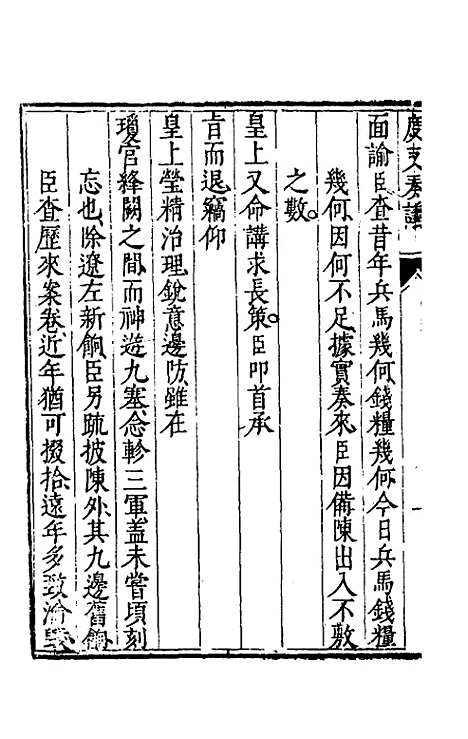 度支奏議
面諭臣查昔年兵馬幾何錢糧幾何今日兵馬錢糧
幾何因何不足據實奏來臣因備陳出入不敷
之數。
皇上又命講求長策。臣叩首承
旨而退竊仰
皇上瑩精治理銳意邊防雖在
瓊宮絳闕之間而神遊九塞念軫三軍盖未嘗頃刻
忘也除遼左新餉臣另疏披陳外其九邊舊餉
臣查歷來案卷近年猶可掇拾遠年多致淪